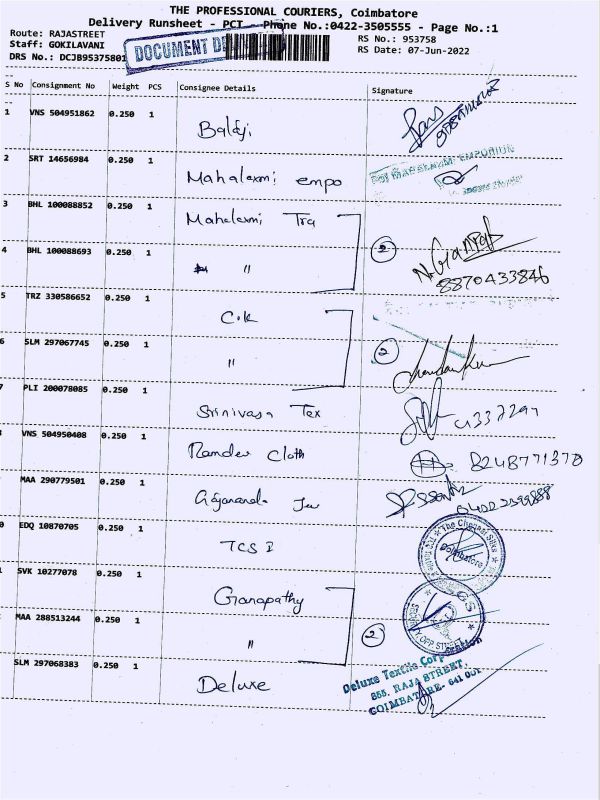 THE PROFESSIONAL COURIERS, Coimbatore
Delivery Runsheet - PCT - Phone No.:0422-3505555 - Page No.:1
Route: RAJASTREET
Staff: GOKILAVANI
DRS No.: DCJB95375801
DOCUMENT
RS No.: 953758
RS Date: 07-Jun-2022
S No Consignment No Weight PCS Consignee Details Signature
1 VNS 504951862 0.250 1 Balaji
2 SRT 14656984 0.250 1 Mahalaxmi empo
SRI MAHALAXMI EMPORIUM
3 BHL 100088852 0.250 1 Mahalaxmi Tra
4 BHL 100088693 0.250 1 "
2
N. Ganpat
8870433846
5 TRZ 330586652 0.250 1 C.K
6 SLM 297067745 0.250 1 "
2
PLI 200078085 0.250 1 Srinivasa Tex
VNS 504950408 0.250 1 Ramdev Cloth
8248771370
MAA 290779501 0.250 1 Gajananda Jew
EDQ 10870705 0.250 1 TCS I
The Chennai Silks
Coimbatore
SVK 10277078 0.250 1 Ganapathy
MAA 288513244 0.250 1 "
2
OPP STREET
SLM 297068383 0.250 1 Deluxe
Deluxe Textile Corporation
855, RAJA STREET,
COIMBATORE- 641 001